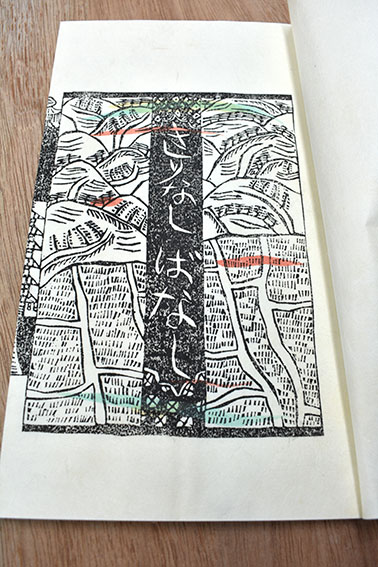 きりなし ばなし